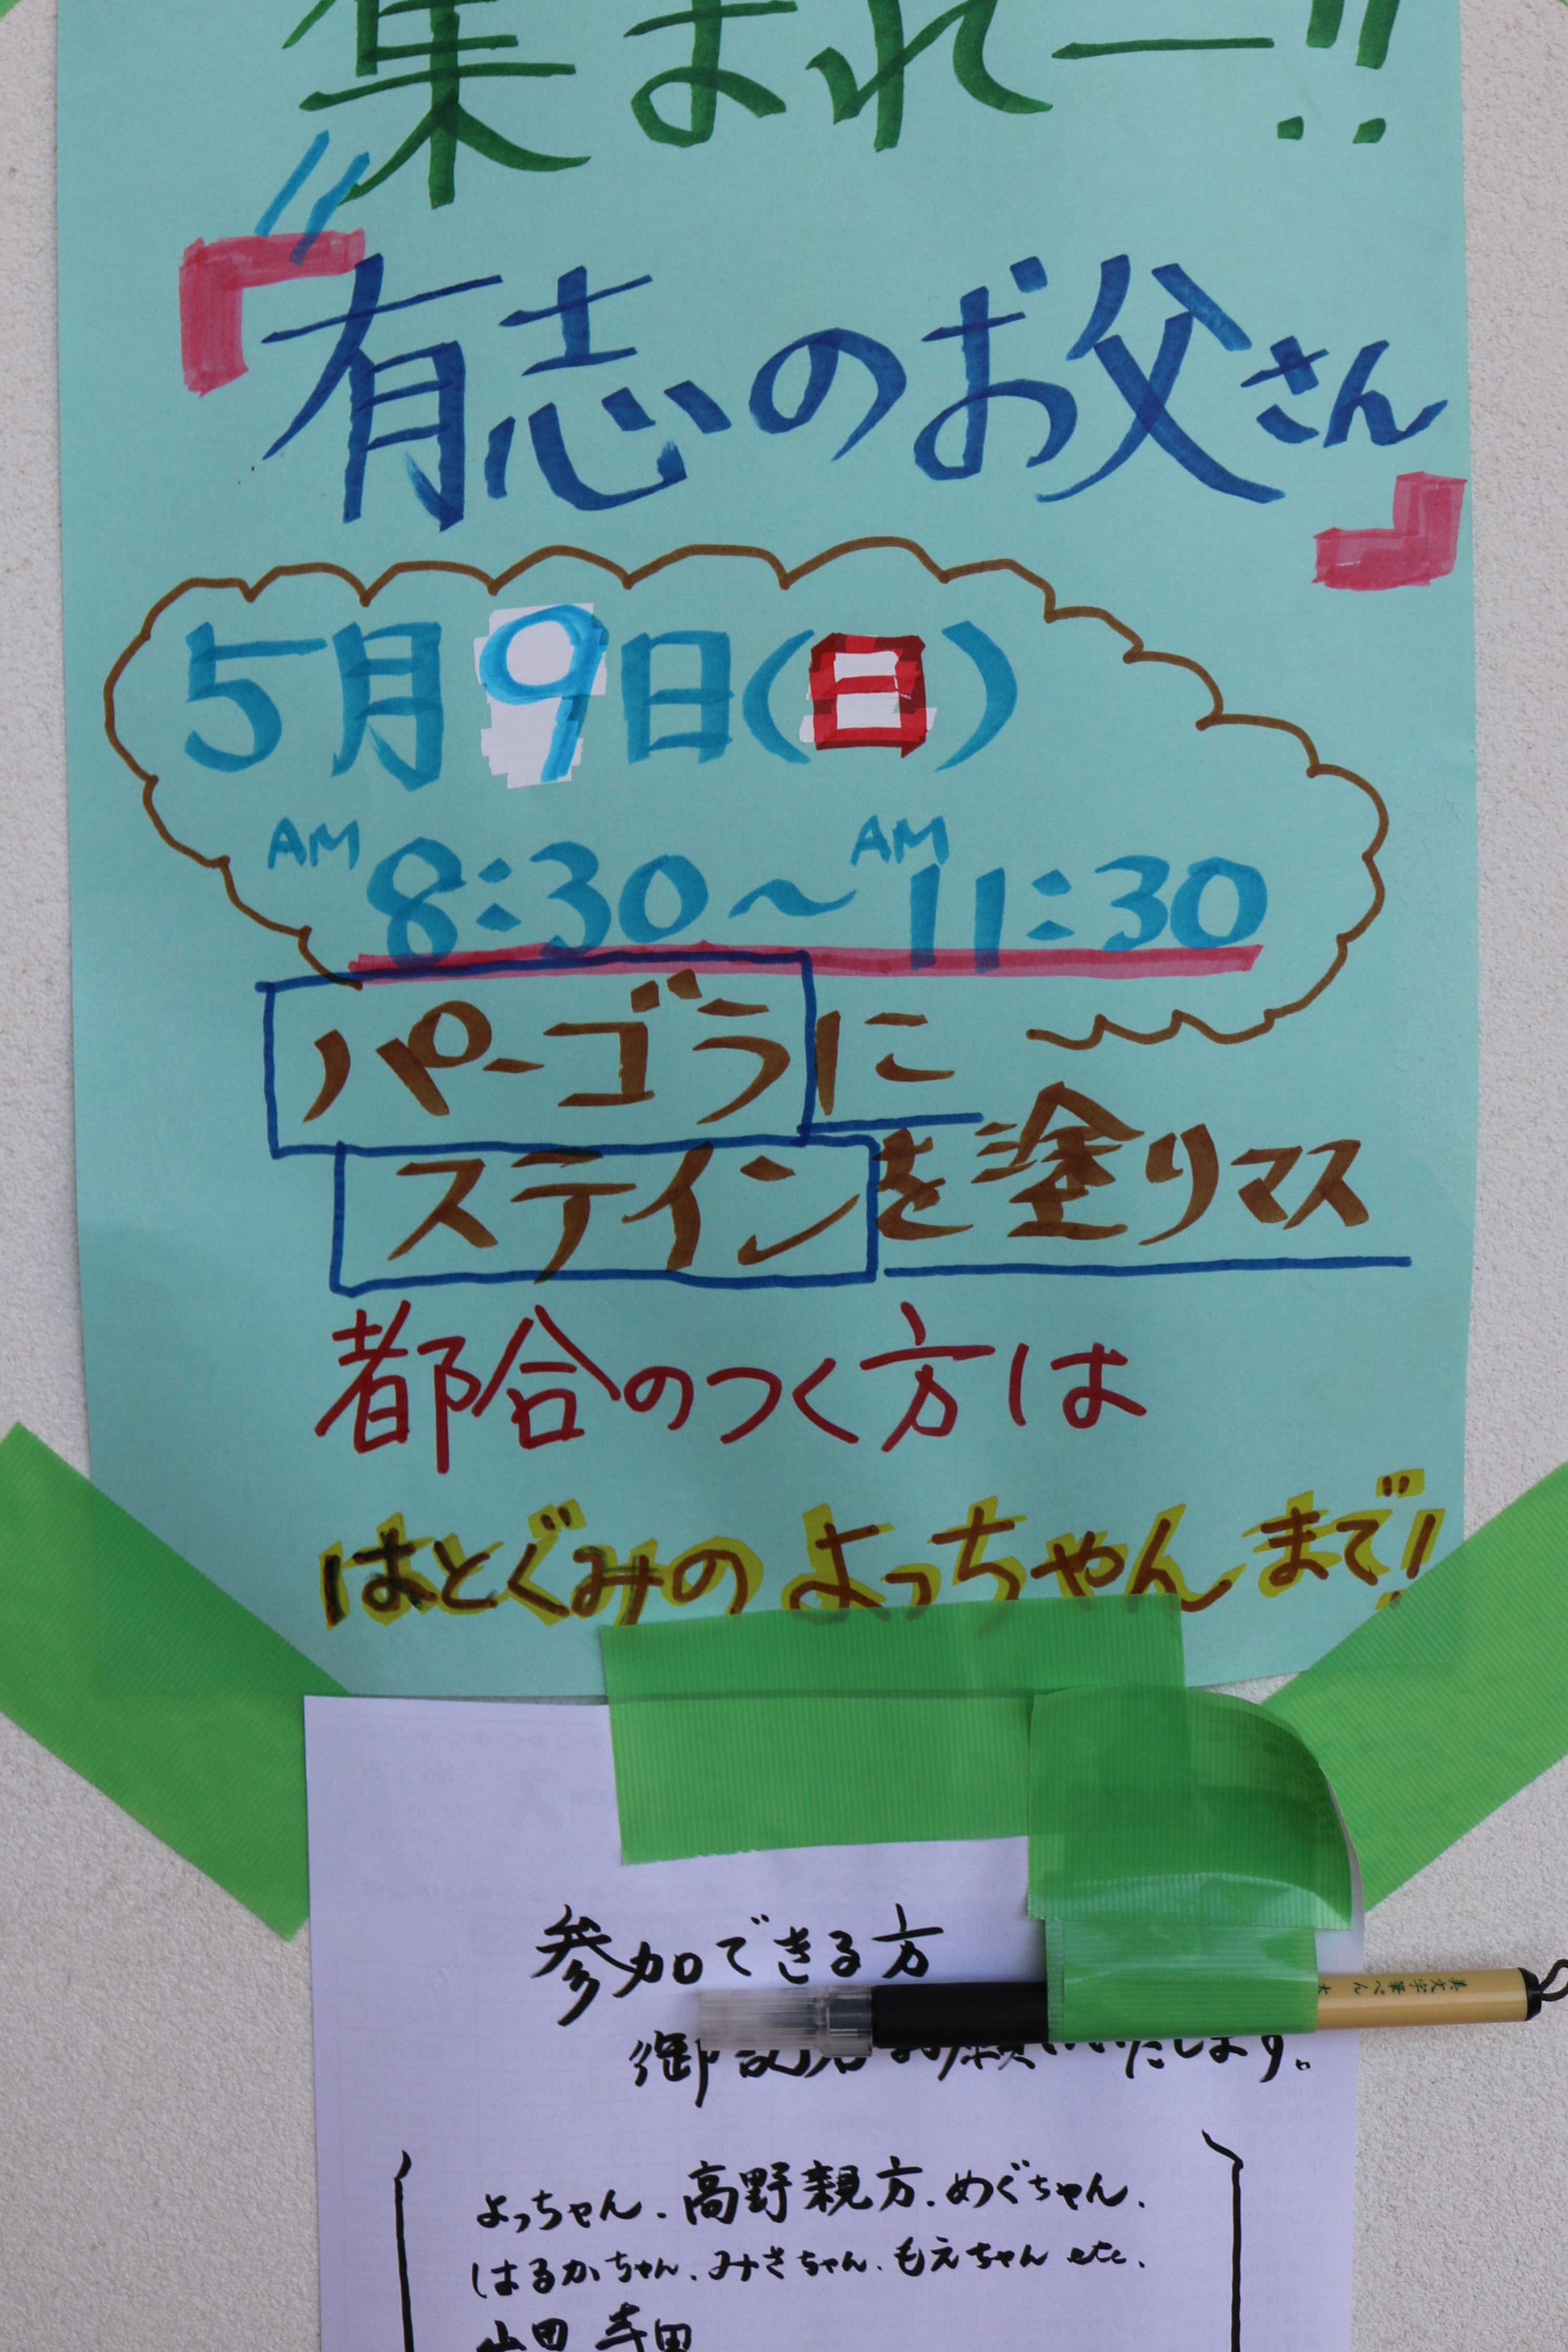 集まれー!!
『有志のお父さん』
5月9日(日)
AM 8:30～AM 11:30
パーゴラに
ステインを塗りマス
都合のつく方は
はとぐみのよっちゃんまで!
参加できる方
美文字筆ぺん
御記名お願いいたします。
よっちゃん.高野親方.めぐちゃん.
はるかちゃん.みさちゃん.もえちゃん etc.
山田 寺田